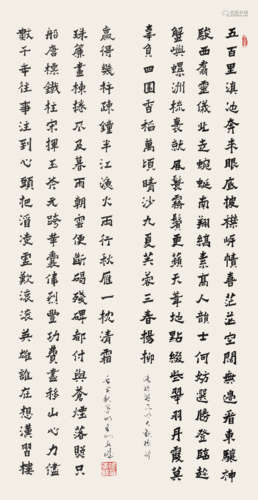 五百里滇池奔來眼底披襟岸幘喜茫茫空闊無邊看東驤神
駿西翥靈儀北走蜿蜒南翔縞素高人韻士何妨選勝登臨趁
蟹嶼螺洲梳裹就風鬟霧鬢更蘋天葦地點綴些翠羽丹霞莫
辜負四圍香稻萬頃晴沙九夏芙蓉三春楊柳
數千年往事注到心頭把酒凌虛歎滾滾英雄誰在想漢習樓
船唐標鐵柱宋揮玉斧元跨革囊偉烈豐功費盡移山心力儘
珠簾畫棟捲不及暮雨朝雲便斷碣殘碑都付與蒼煙落照只
贏得幾杵疎鐘半江漁火兩行秋雁一枕清霜